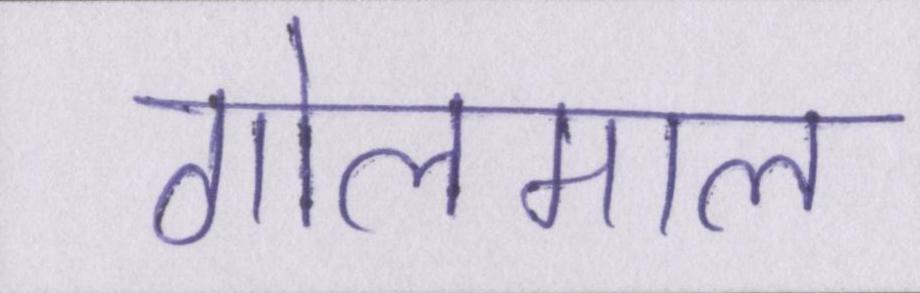 गोलमाल